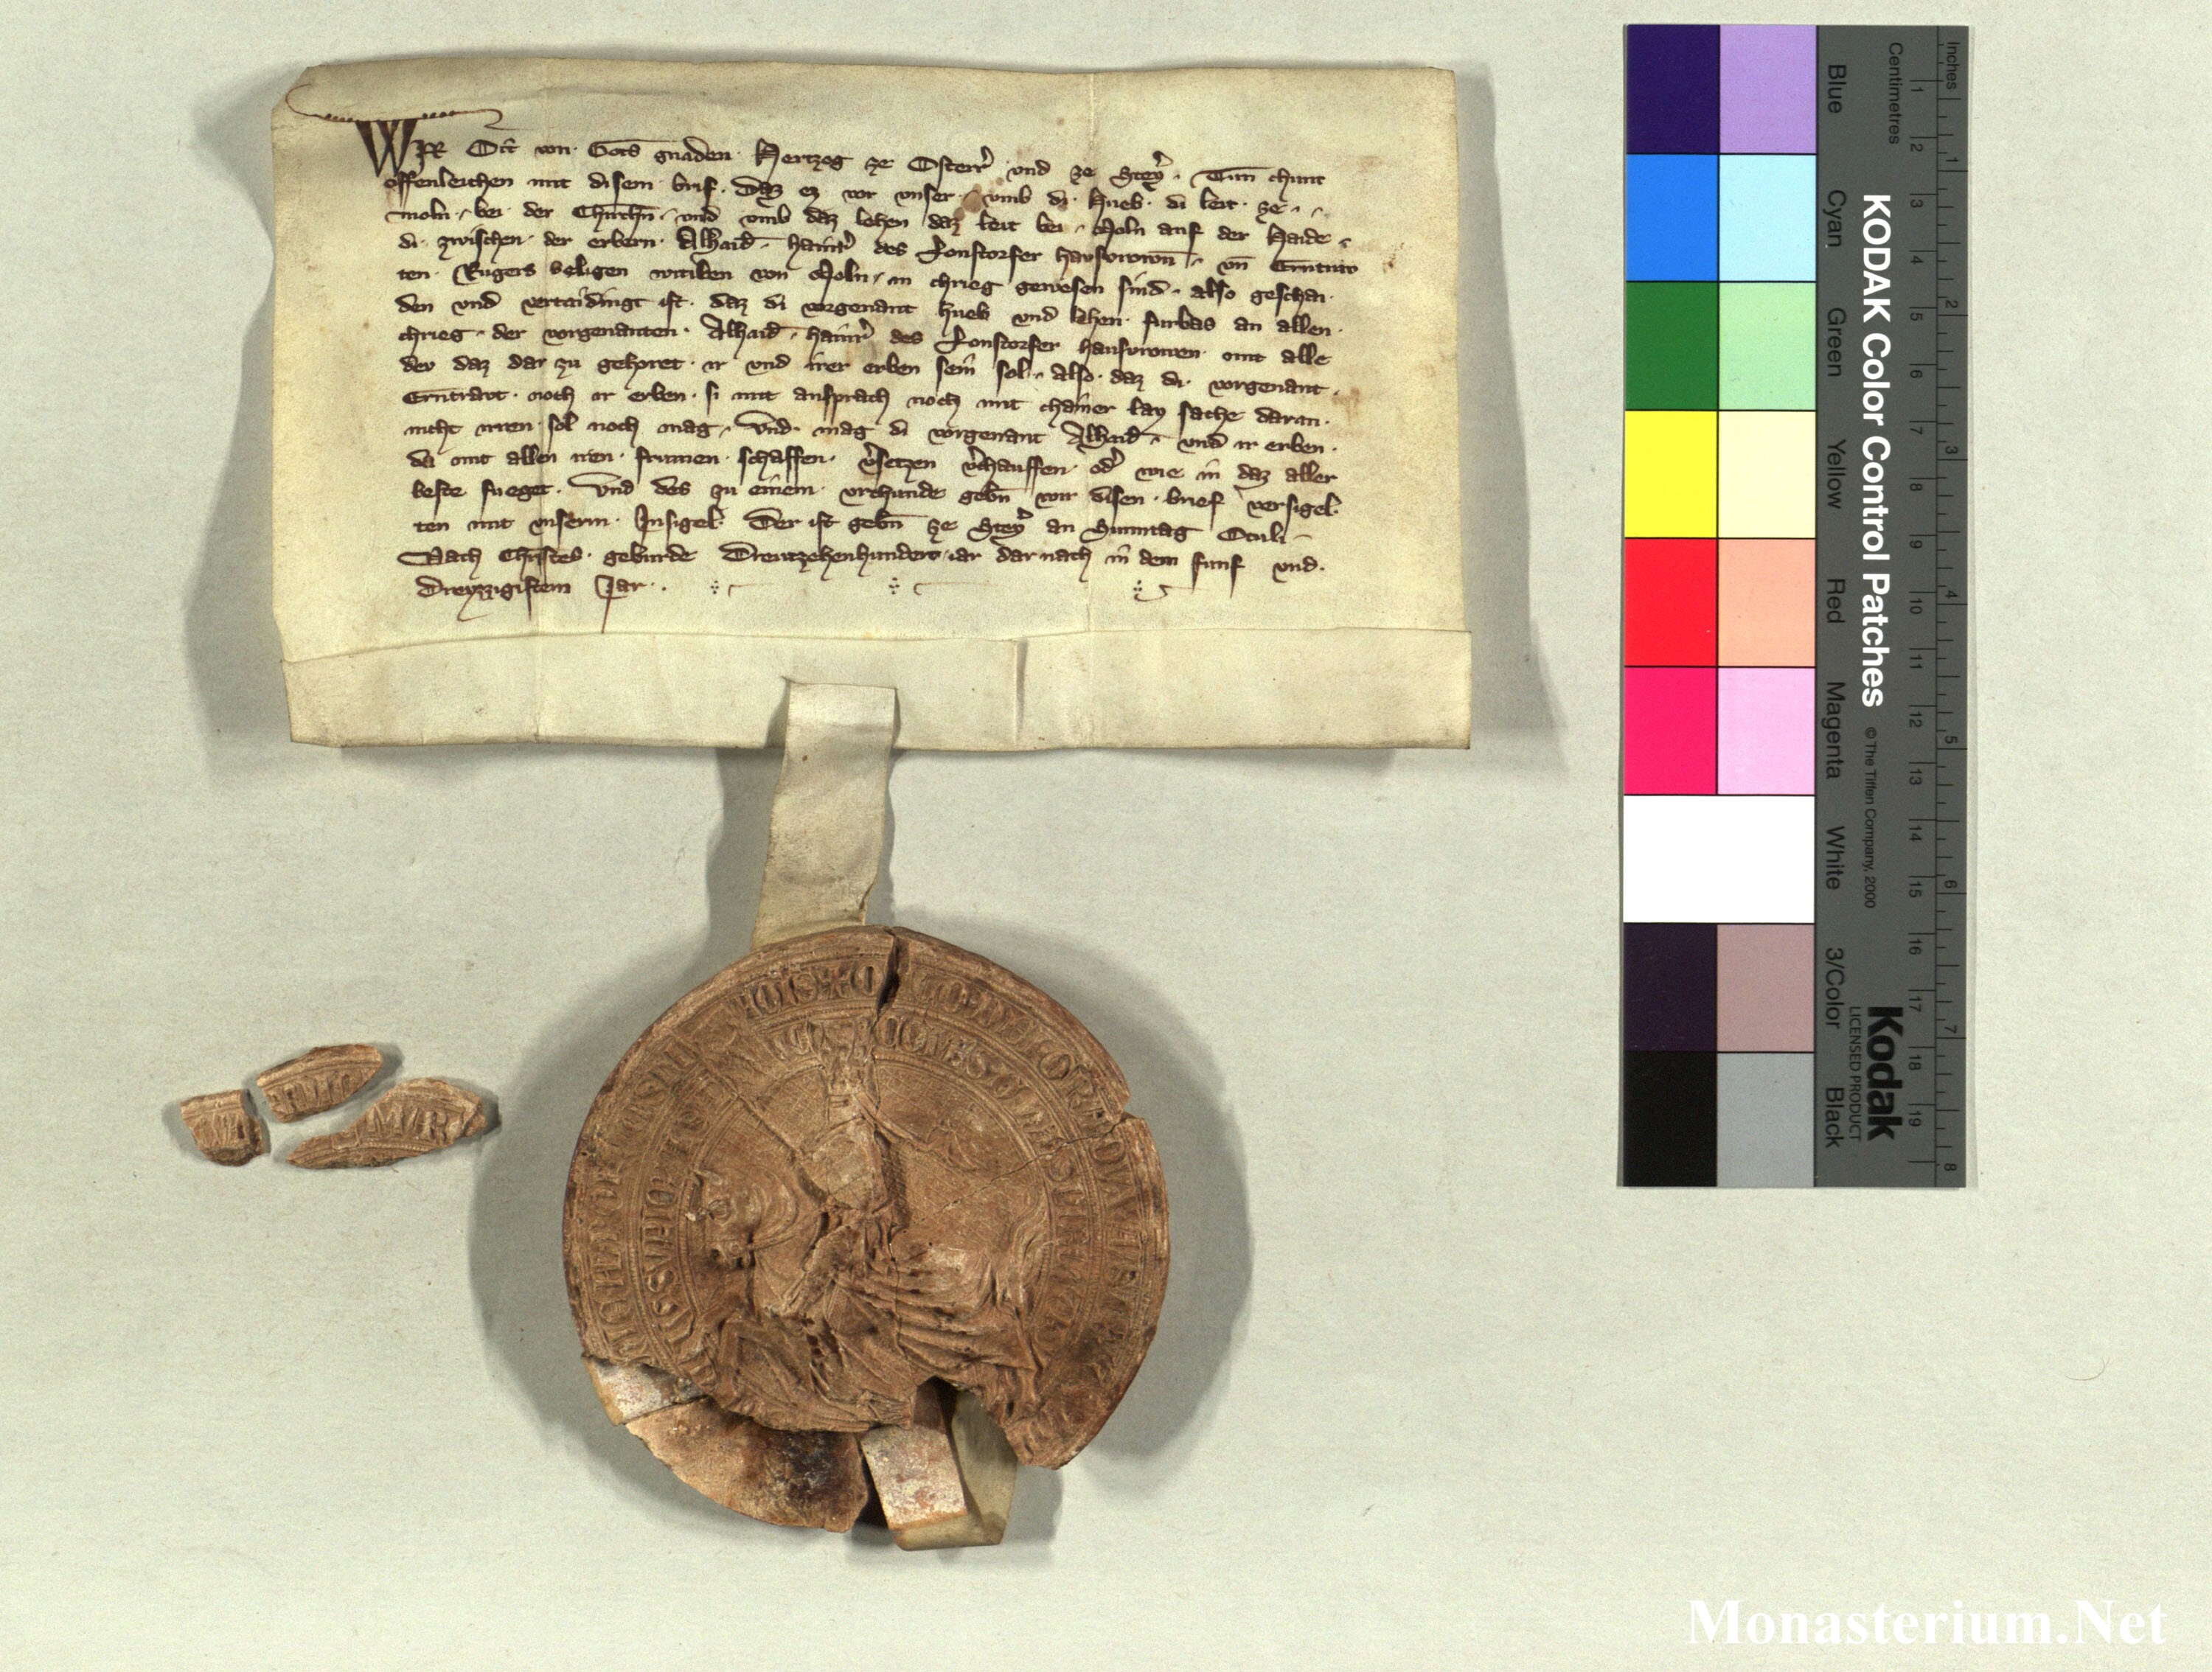 WIR Ott von Gots gnaden Hertzog ze Osterr und ze Steyr Tun chunt
offenleichen mit disem brif. Daz ez vor unser umb di Hueb di leit ze
moln bei der Chirchn und umb daz lehen daz leit bei Moln auf der Haide
di zwischen der erbern Alhaid hainr des Lonstorfer hausvrown un
ten Rugers seligen witiben von Moln in chrieg gewesen sind also geschai
den und vertaidingt ist. daz di vorgenant hueb und lehen furbas an allen
chrieg der vorgenanten Alhaid hainr des Lonstorfer hausvrowen mit alle
dev daz dar zu gehoret ir und irer erben sein sol also daz di vorgenant
Erntravt noch ir erben si mit ansprach noch mit chainer lay sache daran
nicht irren sol noch mag Und mag di vorgenant Alhaid und ir erben
da mit allen iren frumen schaffen vsetzen vchauffen od wie in daz aller
beste fueget. Und des zu einem urchunde gebn wir disen brief versigel
ten mit unserm Insigel Der ist gebn ze Steyr an Sunntag Oculi
Nach Christes geburde Dreutzehenhundert iar dar nach in dem funf und
Dreyzzigistem Jar
KODAK Color Control Patches
© The Tiffen Company, 2000
Kodak
LICENSED PRODUCT
Inches 1 2 3 4 5 6 7 8
Centimetres 1 2 3 4 5 6 7 8 9 10 11 12 13 14 15 16 17 18 19
Blue Cyan Green Yellow Red Magenta White 3/Color Black
Monasterium.Net